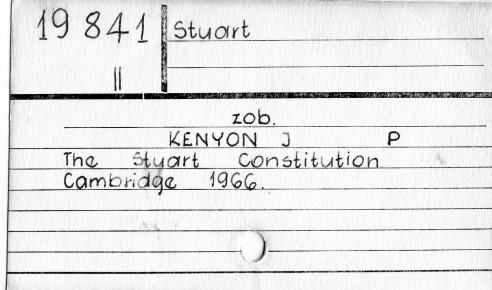 19 841 Stuart
II
zob.
KENYON J P
The Stuart Constitution
Cambridge 1966.